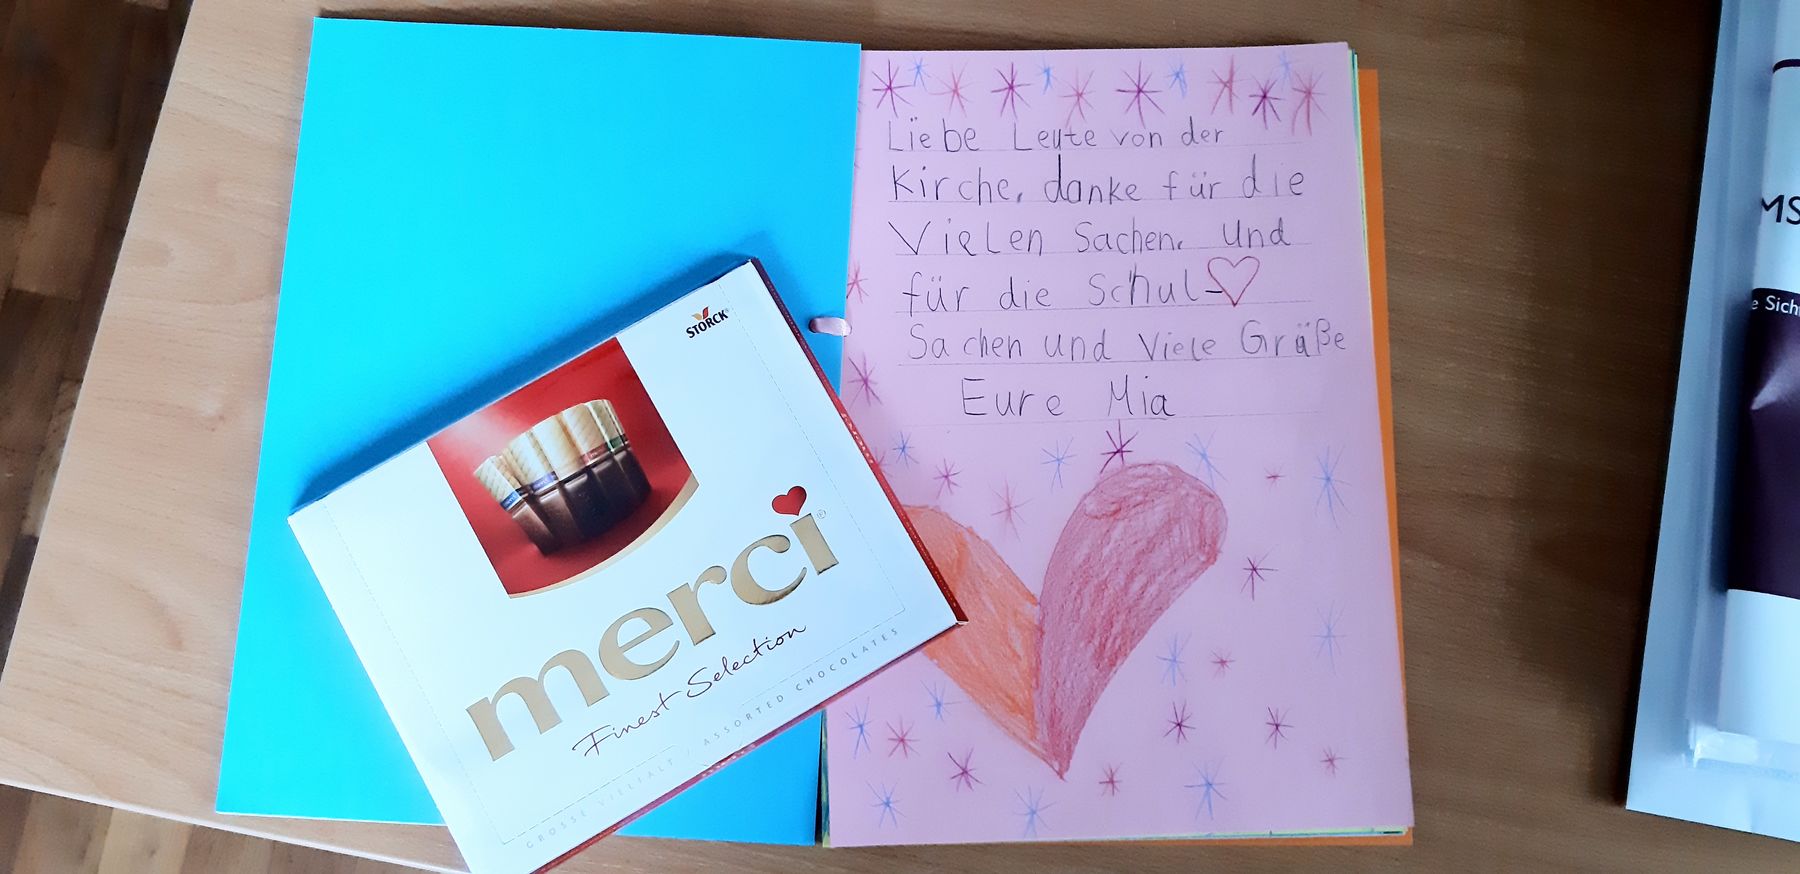 Liebe Leute von der
Kirche, danke für die
Vielen Sachen, und
für die Schul-
Sachen und Viele Gräße
Eure Mia
STORCK®
merci®
Finest Selection
GROSSE VIELFALT / ASSORTED CHOCOLATES
MS
e Sich